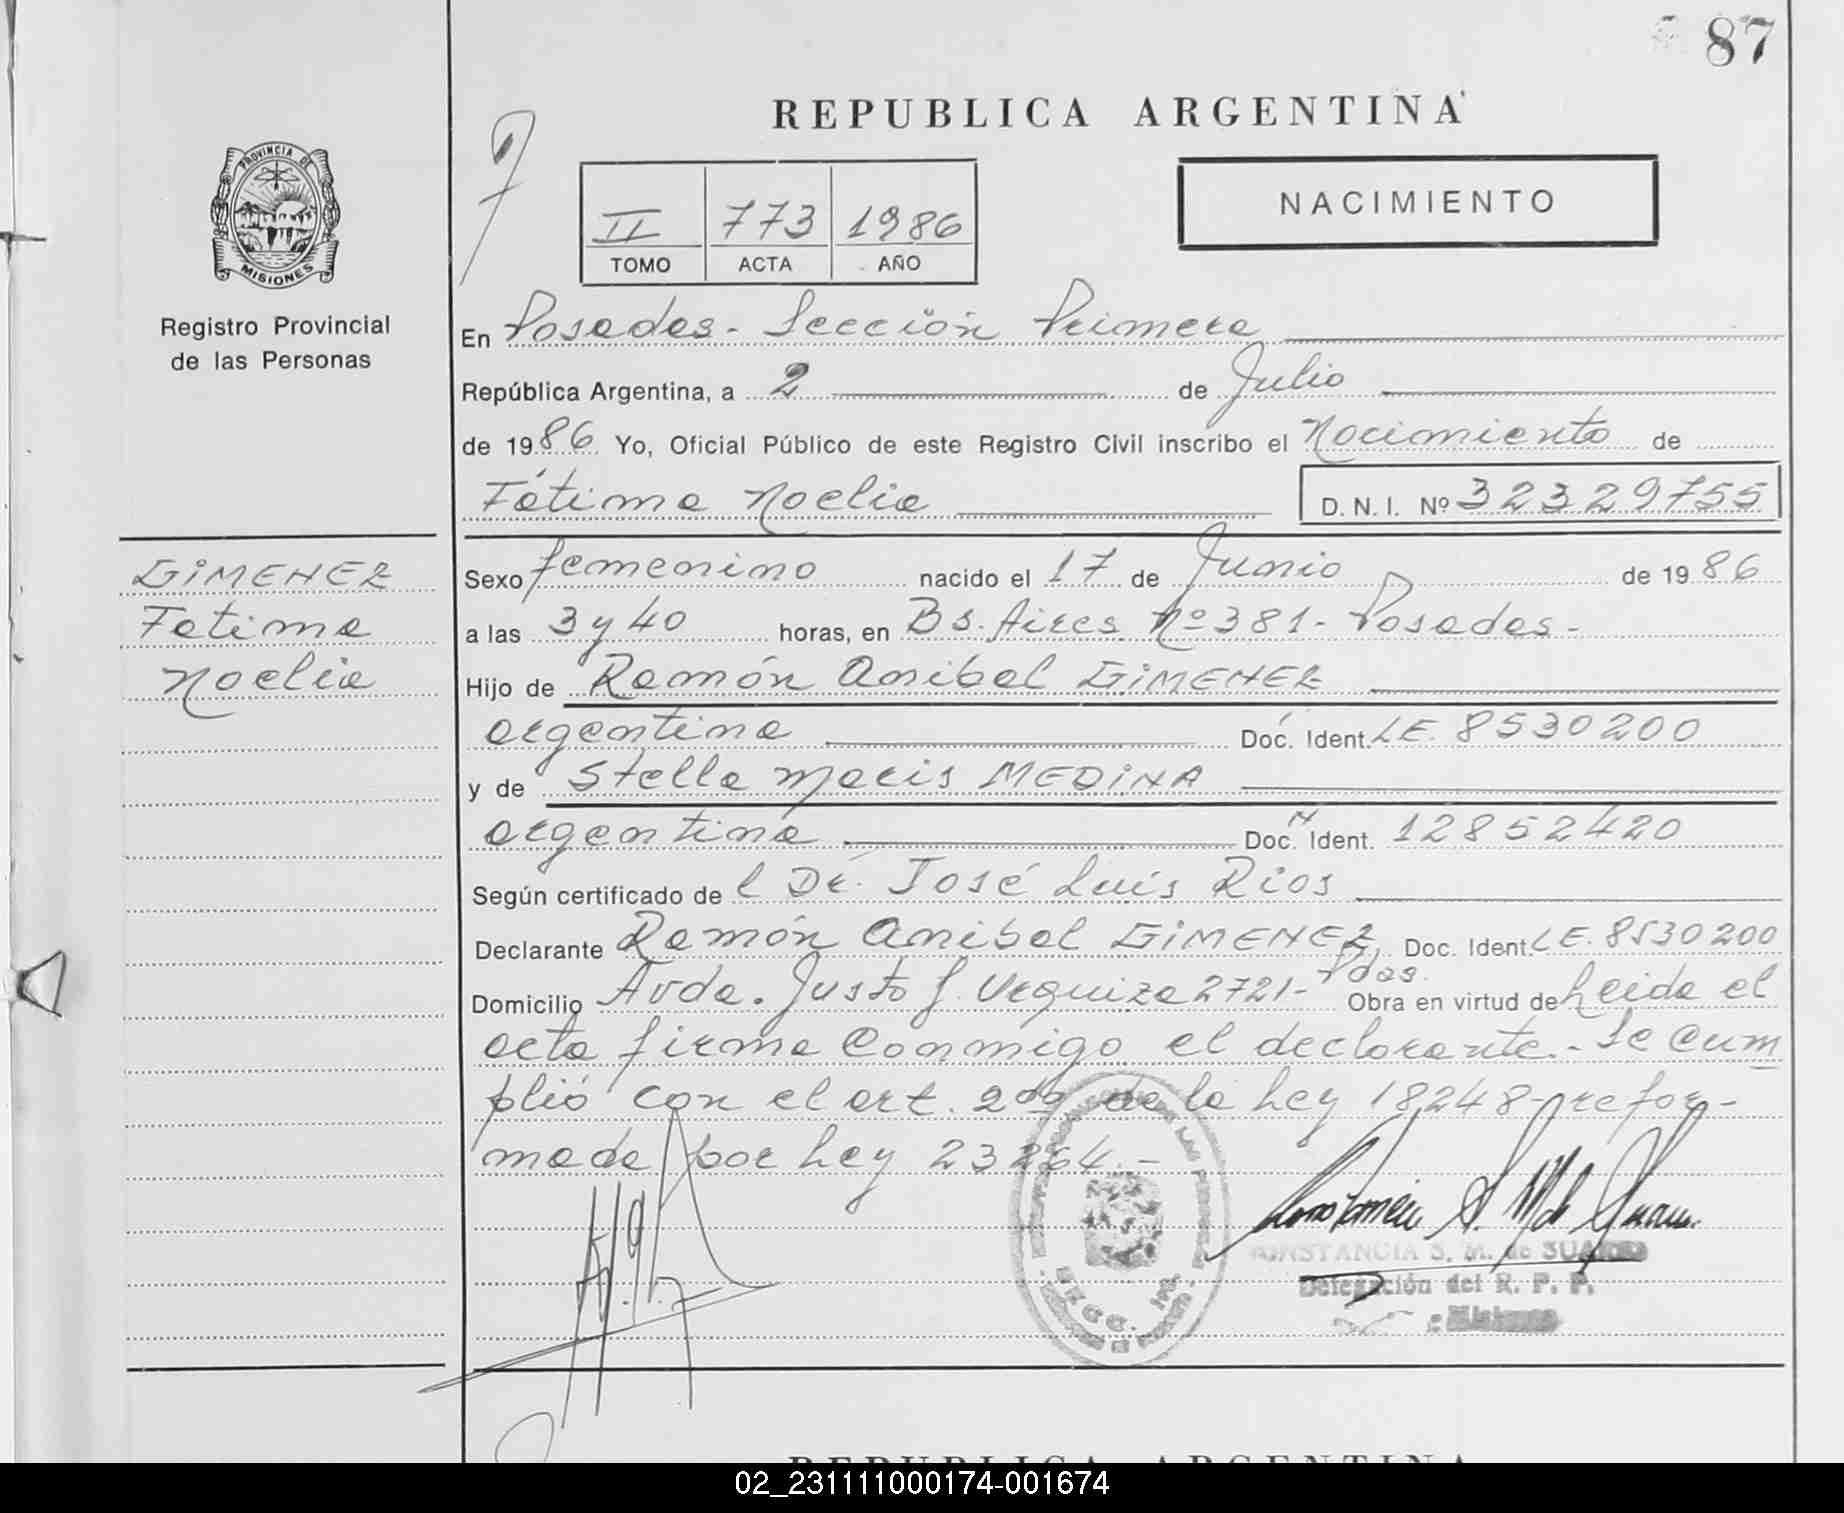 87
REPUBLICA ARGENTINA
PROVINCIA DE
MISIONES
Registro Provincial
de las Personas
II 773 1986
TOMO ACTA AÑO
NACIMIENTO
En Posadas - Sección Primera
República Argentina, a 2 de Julio
de 1986 Yo, Oficial Público de este Registro Civil inscribo el Nacimiento de
Fátima Noelia D. N. I. Nº 32329755
GIMENEZ
Fatima
Noelia
Sexo femenino nacido el 17 de Junio de 1986
a las 3 y 40 horas, en Bs. Aires Nº 381 - Posadas -
Hijo de Ramón Anibal GIMENEZ
argentina Doc. Ident. L.E. 8530200
y de Stella Maris MEDINA
argentina Doc. Ident. 12852420
Según certificado de l Dr. José Luis Rios
Declarante Ramón Anibal GIMENEZ Doc. Ident. L.E. 8530200
Domicilio Avda. Justo J. Urquiza 2721 - Pdas. Obra en virtud de Leida el
acta firma conmigo el declarante. - Se cum
plió con el art. 2do de la Ley 18248 - refor-
mada por Ley 23264. -
CONSTANCIA S. M. de
Delegación del R. P. P.
Misiones
REPUBLICA ARGENTINA
02_231111000174-001674